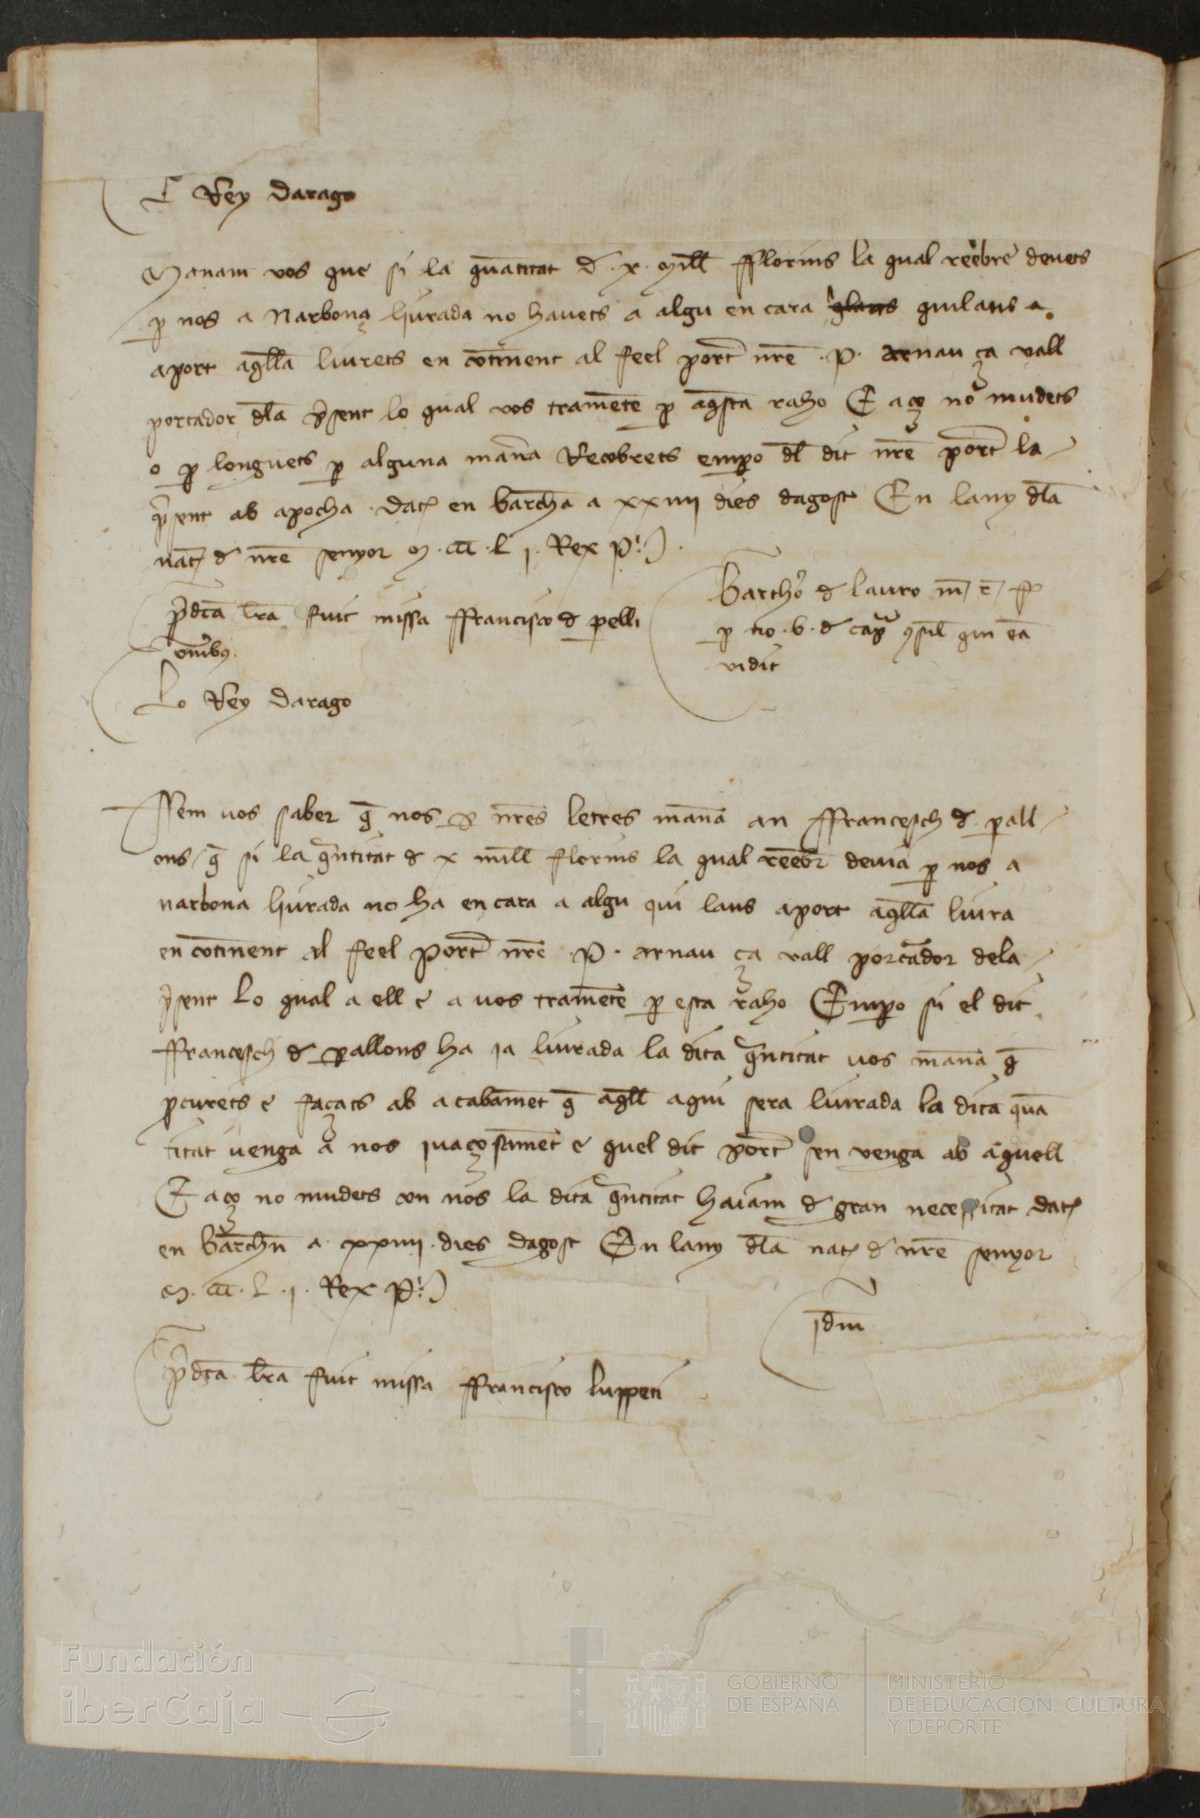 Rey Darago
Manam vos que si la quatitat d. x. Mill Fflorins la qual reebre devets
p nos a Narbona liurada no havets a algu en cara qui laus
aport aqlla liurets en cotinent al feel port nre .P. arnau ça vall
portador dla psent lo qual vos trametē p aqsta raho E aço no mudets
o p longuets p alguna manā Recobrets empo dl dit nre port la
psent ab apocha dat en barchā a xxiiii dies dagost En lany dla
nat d nre senyor M. ccc. L i. Rex P.
pdcā lrā fuit missa Ffrancisco d pelli
onibus.
Bartho d lauro
p .b. d qui eā
vidit
Lo Rey Darago
Ffem vos saber q nos p nres letres manā an Ffrancesch d pall
ons q si la qntitat d x mill florins la qual reebr devia p nos a
narbona liurada no ha en cara a algu qui laus aport aqlla liura
en cotinent al feel Port nre .P. arnau ça vall portador dela
psent Lo qual a ell e a vos trametē p esta raho Empo si el dit
Ffrancesch d pallons ha ia liurada la dita qntitat vos manā q
pcurets e façats ab acabamet q aqll aqui sera liurada la dita quā
titat venga a nos ivaçosamēt e quel dit port sen venga ab aquell
E aço no mudets con nos la dita qntitat haiam d gran necessitat dat
en barchn a xxiiii dies dagost En lany dla nat d nre senyor
M. ccc. L. i. Rex P.
idm
pdcā lrā fuit missa Ffrancisco luppeti
Fundación
iberCaja
GOBIERNO
DE ESPAÑA
MINISTERIO
DE EDUCACIÓN, CULTURA
Y DEPORTE